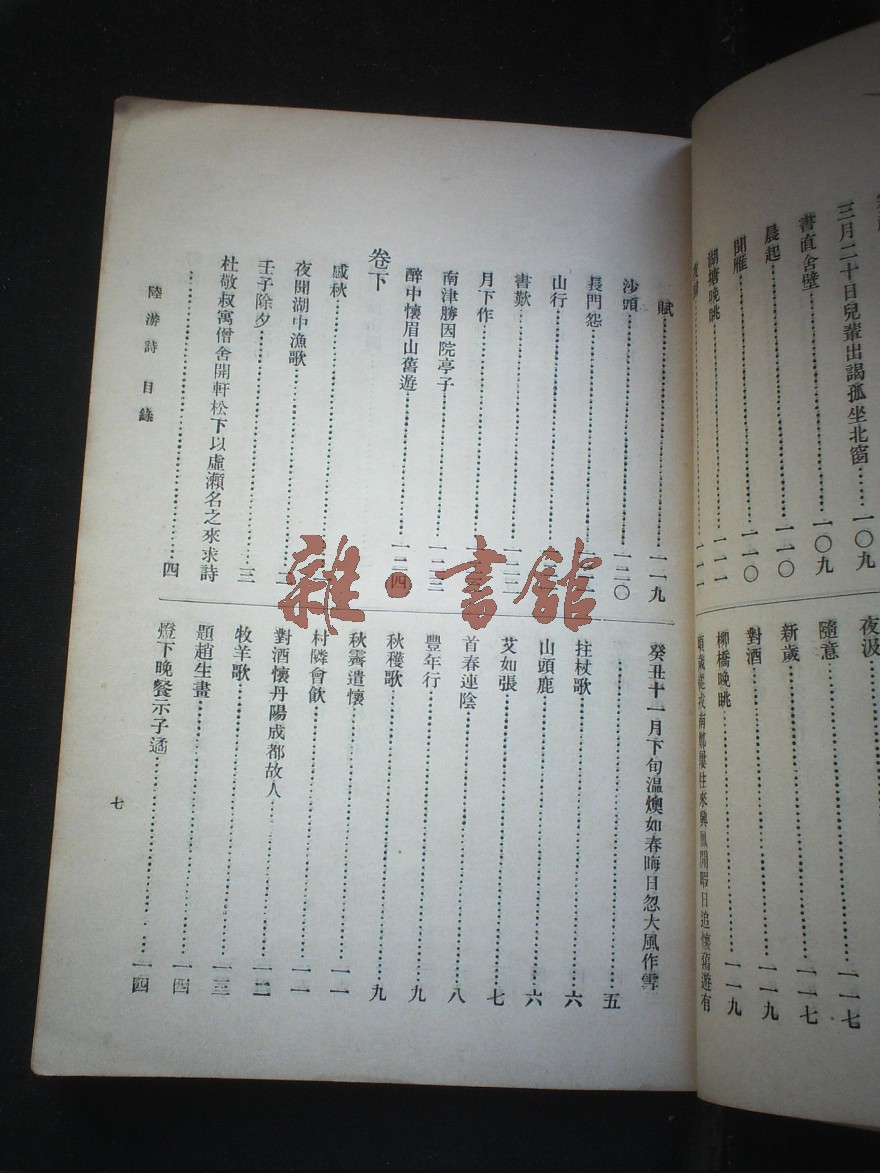 三月二十日兒輩出謁孤坐北窗……一〇九
書直舍壁……一〇九
晨起……一一〇
聞雁……一一〇
湖塘晚眺……一一一
夜汲
隨意……一一七
新歲……一一七
對酒……一一九
柳橋晚眺……一一九
頃歲從戎南鄭屢往來興鳳間暇日追懷舊遊有
賦……一一九
沙頭……一二〇
長門怨
山行
書歎
月下作
南津勝因院亭子……一二三
醉中懷眉山舊遊……一二四
卷下
感秋
夜聞湖中漁歌
壬子除夕……三
杜敬叔寓僧舍開軒松下以虛瀨名之來求詩
……四
癸丑十一月下旬溫燠如春晦日忽大風作雪
……五
拄杖歌……六
山頭鹿……六
艾如張……七
首春連陰……八
豐年行……九
秋穫歌……九
秋霽遣懷……一一
村隣會飲……一一
對酒懷丹陽成都故人……一二
牧羊歌……一三
題趙生畫……一四
燈下晚餐示子遹……一四
陸游詩 目錄
七
雜·書館